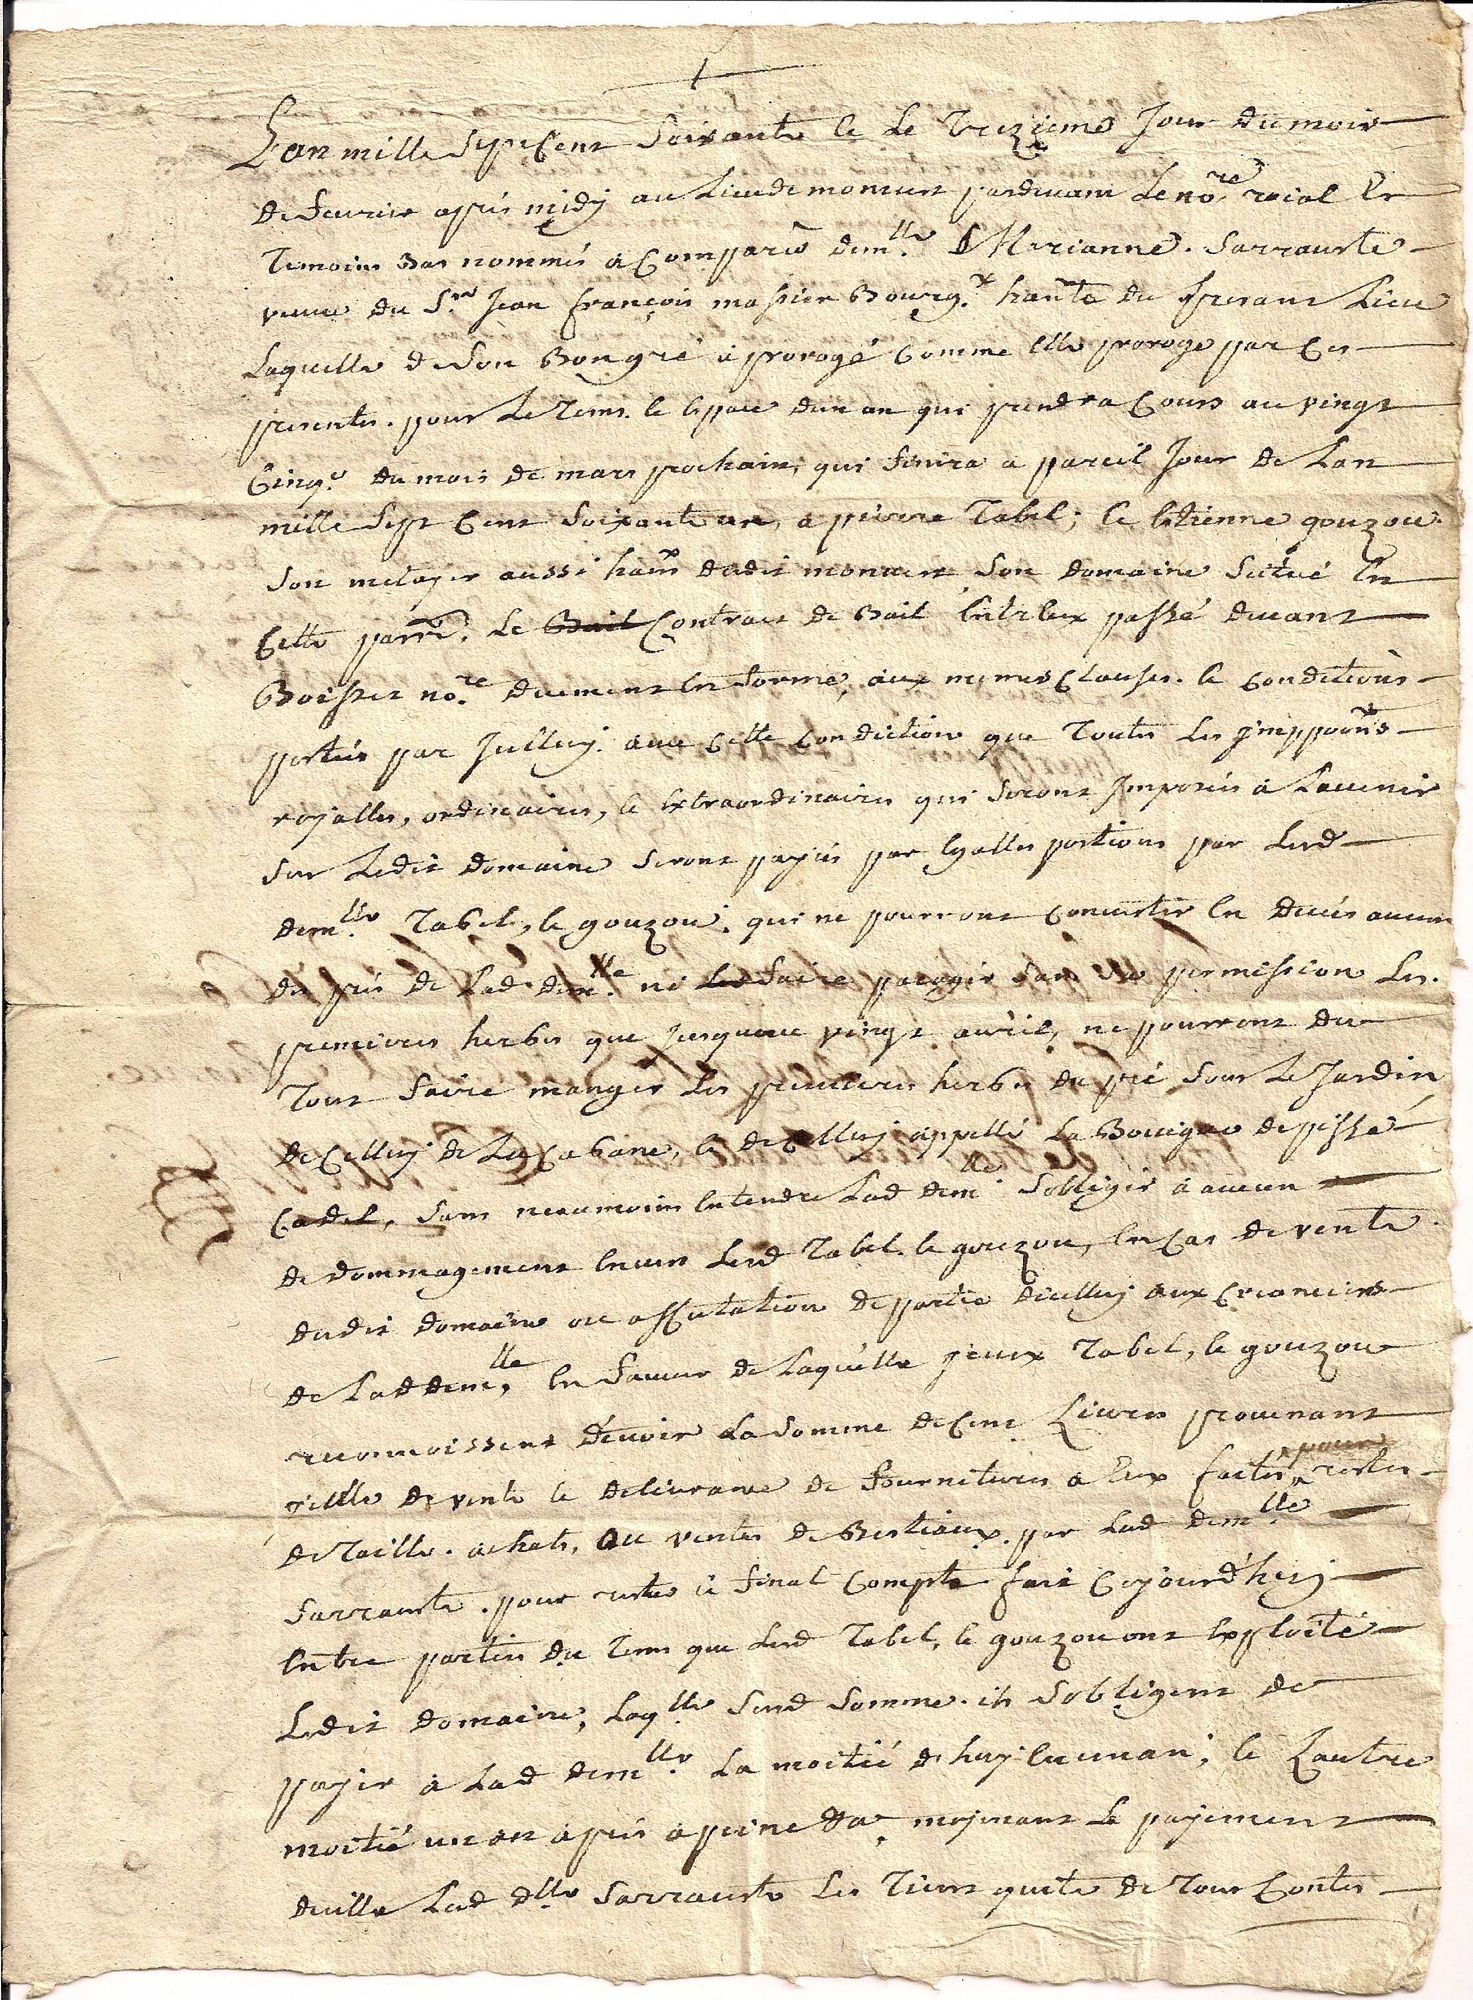 L'an mille sept Cent soixante & Le Treziême Jour du mois
de fevrier apres midy au Lieu de moncuns pardevant Le no.re roial Et
Temoins Bas nommés a Comparu dem.lle Marianne Sarrauste
veuve du S.r Jean françois massier Bourg.x hañte du present Lieu
Laquelle de son Bongré à prorogé Comme Elle proroge par Ces
presentes. pour Le Tems & Espace dun an qui prendra Cours au vingt
Cinq.e du mois de mars prochain, qui finira a pareil Jour de Lan
mille sept Cent soixante un, a pierre Tabel; & Etienne gouzou
son metayer aussi hañs dudit son domaine scitué En
Cette parr̃e. Le Bail Contrat de Bail Entr'Eux passé devant
Boisset no.re duement En forme, aux memes Clauses & Conditions
portées par Jcelluy. avec Cette Condiction que Toutes Les Jmppoõns
royalles, ordinaires, & Extraordinaires qui seront Jmposées à Lavenir
sur Ledit domaine seront payées par Egalles portions par Lesd
dem.lle Tabel, & gouzou. qui ne pourront Convertir En aucun
des prés de Lad dem.lle ni Les faire pacager sans sa permission Les
premieres herbes que Jusqueau vingt avril, ne pourront du
Tout faire manger Les premieres herbes du pré sous Le Jardin,
de Celluy de La Cabane, & de Celluy appellé La Bouigue de pissé
Cadel, sans neaumoins Entendre Lad dem.lle sobliger à aucun
de dommagement Envers Lesd Tabel & gouzou, En Cas de vente
dudit domaine ou de partie dicelluy aux Creanciers
de Lad dem.lle, En faveur de Laquelle Jceux Tabel, & gouzou
reconnoissent dévoir La somme de Cent Livres provenant
Jcelle de vente & delivrance de fournitures a Eux faites pour restes
de Taille. achats, ou ventes de Bestiaux par Lad dem.lle
Sarrauste. pour reste & final Compte fait Cejourd'huy
Entre parties du Tems que Lesd Tabel, & gouzou ont Exploité
Ledit domaine; Laq.lle susd somme ils sobligent de
payer à Lad dem.lle La moitié dhuy En un an; & Lautre
moitié un an àprés à peine &a, mojenant Le payement
dicelle Lad d.lle Sarrauste Les Tient quite de Tous Contes